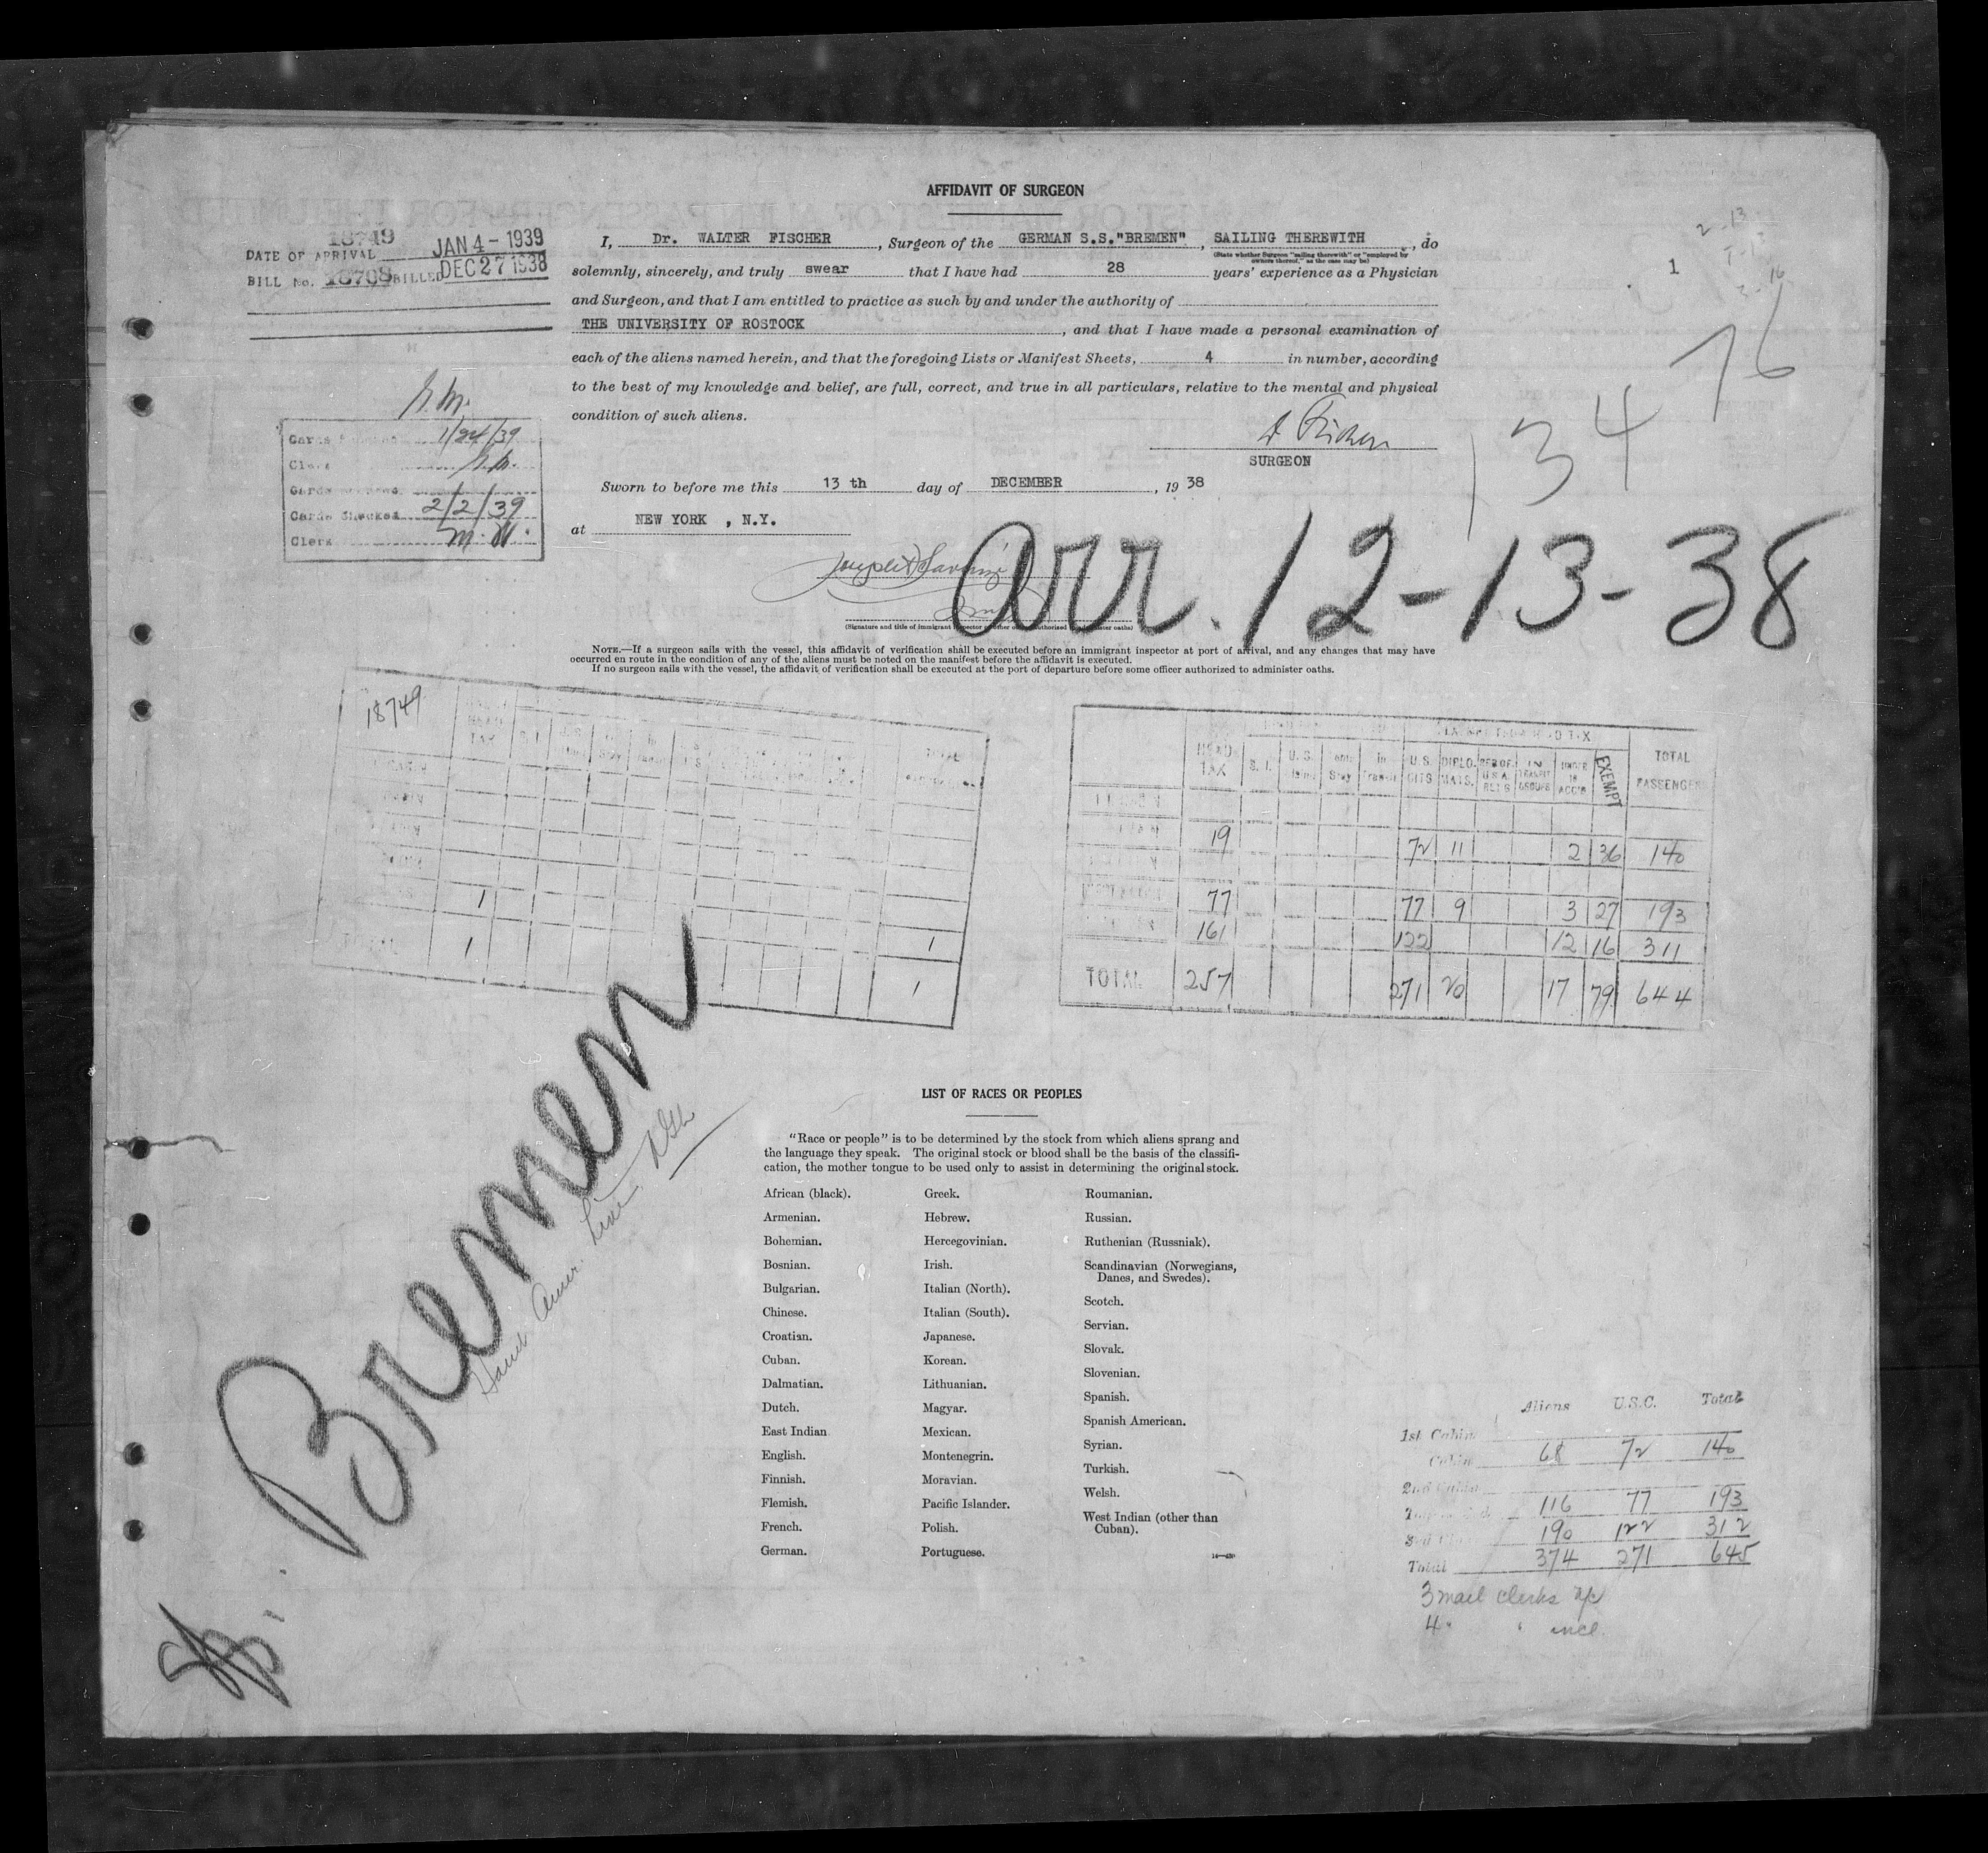 AFFIDAVIT OF SURGEON
18749
DATE OF ARRIVAL JAN 4 - 1939
BILL No. 18708 BILLED DEC 27 1938
I, Dr. WALTER FISCHER, Surgeon of the GERMAN S.S."BREMEN", SAILING THEREWITH, do
(State whether Surgeon "sailing therewith" or "employed by
owners thereof," as the case may be)
solemnly, sincerely, and truly swear that I have had 28 years' experience as a Physician
and Surgeon, and that I am entitled to practice as such by and under the authority of
THE UNIVERSITY OF ROSTOCK, and that I have made a personal examination of
each of the aliens named herein, and that the foregoing Lists or Manifest Sheets, 4 in number, according
to the best of my knowledge and belief, are full, correct, and true in all particulars, relative to the mental and physical
condition of such aliens.
SURGEON
Sworn to before me this 13 th day of DECEMBER, 19 38
at NEW YORK , N.Y.
1
2-13
76
134
Cards 1/24/39
Clerk
Cards
Cards Checked 2/2/39
Clerk M.W.
arr. 12-13-38
(Signature and title of immigrant inspector or other officer authorized to administer oaths)
NOTE.—If a surgeon sails with the vessel, this affidavit of verification shall be executed before an immigrant inspector at port of arrival, and any changes that may have
occurred en route in the condition of any of the aliens must be noted on the manifest before the affidavit is executed.
If no surgeon sails with the vessel, the affidavit of verification shall be executed at the port of departure before some officer authorized to administer oaths.
18749
TAX S. I. TOTAL
1
TOTAL 1 1
1
HEAD TAX S. I. U. S. Stay In Transit U.S. CITS DIPLO. MATS. RES OF U.S.A. IN TRANSIT GROUPS UNDER 16 ACC'D EXEMPT TOTAL PASSENGERS
19 72 11 2 36 140
77 77 9 3 27 193
161 122 12 16 311
TOTAL 257 271 20 17 79 644
Bremen
Amer. Line
LIST OF RACES OR PEOPLES
"Race or people" is to be determined by the stock from which aliens sprang and
the language they speak. The original stock or blood shall be the basis of the classifi-
cation, the mother tongue to be used only to assist in determining the original stock.
African (black).
Armenian.
Bohemian.
Bosnian.
Bulgarian.
Chinese.
Croatian.
Cuban.
Dalmatian.
Dutch.
East Indian
English.
Finnish.
Flemish.
French.
German.
Greek.
Hebrew.
Hercegovinian.
Irish.
Italian (North).
Italian (South).
Japanese.
Korean.
Lithuanian.
Magyar.
Mexican.
Montenegrin.
Moravian.
Pacific Islander.
Polish.
Portuguese.
Roumanian.
Russian.
Ruthenian (Russniak).
Scandinavian (Norwegians,
Danes, and Swedes).
Scotch.
Servian.
Slovak.
Slovenian.
Spanish.
Spanish American.
Syrian.
Turkish.
Welsh.
West Indian (other than
Cuban).
Aliens U.S.C. Total
1st Cabin
Cabin 68 72 140
2nd Cabin
116 77 193
190 122 312
Total 374 271 645
3 mail clerks
4 " " incl.